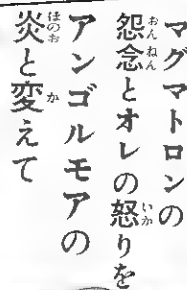 マグマトロンの
怨念とオレの怒りを
アンゴルモアの
炎と変えて